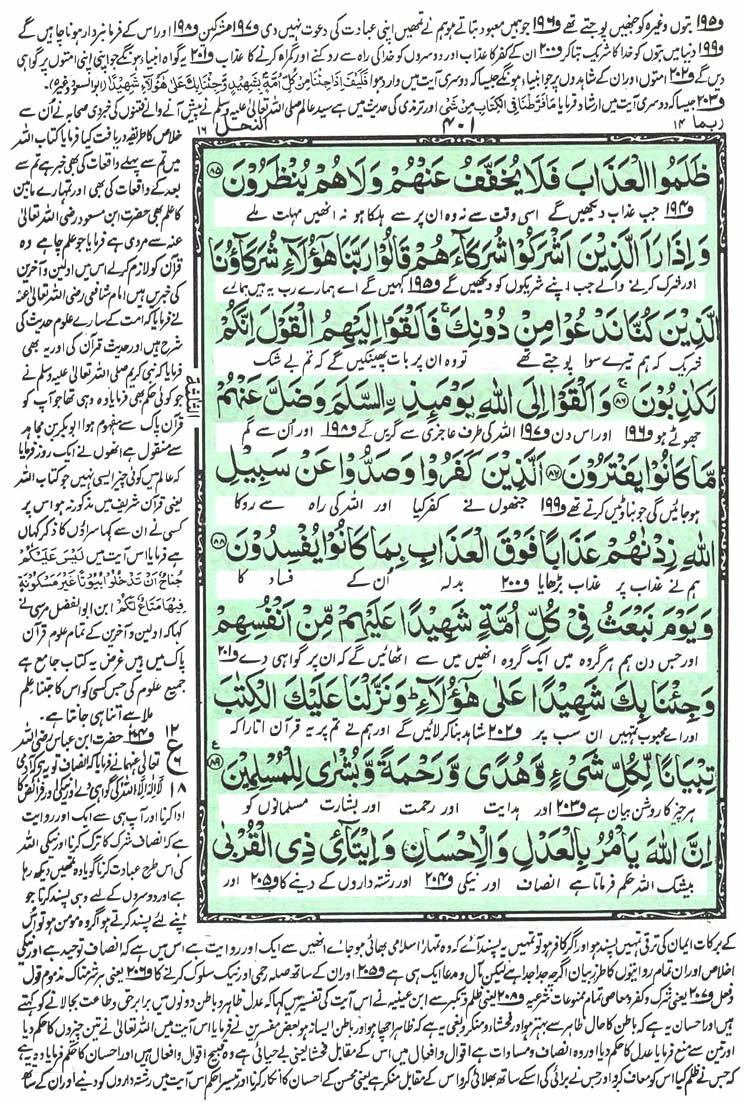 و۱۹۵ بتوں وغیرہ کو جنھیں پوجتے تھے و۱۹۶ جو ہمیں معبود بتاتے ہو ہم نے تمھیں اپنی عبادت کی دعوت نہیں دی و۱۹۷ مشرکین و۱۹۸ اور اس کے فرمانبردار ہونا چاہیں گے
و۱۹۹ دنیا میں بتوں کو خدا کا شریک بتا کر و۲۰۰ ان کے کفر کا عذاب اور دوسروں کو خدا کی راہ سے روکنے اور گمراہ کرنے کا عذاب و۲۰۱ یہ گواہ انبیاء ہونگے جو اپنی اپنی امتوں پر گواہی
دیں گے و۲۰۲ امتوں اور ان کے شاہدوں پر جو انبیاء ہونگے جیسا کہ دوسری آیت میں وارد ہوا فَكَيْفَ اِذَا جِئْنَا مِنْ كُلِّ اُمَّةٍۭ بِشَهِيْدٍ وَّجِئْنَا بِكَ عَلٰى هٰۤؤُلَآءِ شَهِيْدًا (ابوالسعود وغیرہ)
و۲۰۳ جیسا کہ دوسری آیت میں ارشاد فرمایا مَا فَرَّطْنَا فِى الْكِتٰبِ مِنْ شَىْءٍ اور ترمذی کی حدیث میں ہے سید عالم صلی اللہ تعالٰی علیہ وسلم نے پیش آنے والے فتنوں کی خبر دی صحابہ نے اُن سے
ربما ۱۴
۴۰۱
النحل ۱۶
ظَلَمُوا الْعَذَابَ فَلَا يُخَفَّفُ عَنْهُمْ وَلَا هُمْ يُنْظَرُوْنَ ۝۸۵
و۱۹۴ جب عذاب دیکھیں گے اسی وقت سے نہ وہ ان پر سے ہلکا ہو نہ انھیں مہلت ملے
وَ اِذَا رَاَ الَّذِيْنَ اَشْرَكُوْا شُرَكَآءَهُمْ قَالُوْا رَبَّنَا هٰۤؤُلَآءِ شُرَكَآؤُنَا
اور شرک کرنے والے جب اپنے شریکوں کو دیکھیں گے و۱۹۵ کہیں گے اے ہمارے رب یہ ہیں ہمارے
الَّذِيْنَ كُنَّا نَدْعُوْا مِنْ دُوْنِكَ ۚ فَاَلْقَوْا اِلَيْهِمُ الْقَوْلَ اِنَّكُمْ
شریک کہ ہم تیرے سوا پوجتے تھے تو وہ ان پر بات پھینکیں گے کہ تم بے شک
لَكٰذِبُوْنَ ۝۸۶ وَ اَلْقَوْا اِلَى اللّٰهِ يَوْمَىِٕذِ ِ۟السَّلَمَ وَضَلَّ عَنْهُمْ
جھوٹے ہو و۱۹۶ اور اس دن و۱۹۷ اللہ کی طرف عاجزی سے گریں گے و۱۹۸ اور اُن سے گم
مَّا كَانُوْا يَفْتَرُوْنَ ۝۸۷ اَلَّذِيْنَ كَفَرُوْا وَصَدُّوْا عَنْ سَبِيْلِ
ہو جائیں گی جو بناوٹیں کرتے تھے و۱۹۹ جنھوں نے کفر کیا اور اللہ کی راہ سے روکا
اللّٰهِ زِدْنٰهُمْ عَذَابًا فَوْقَ الْعَذَابِ بِمَا كَانُوْا يُفْسِدُوْنَ ۝۸۸
ہم نے عذاب پر عذاب بڑھایا و۲۰۰ بدلہ اُن کے فساد کا
وَيَوْمَ نَبْعَثُ فِىْ كُلِّ اُمَّةٍ شَهِيْدًا عَلَيْهِمْ مِّنْ اَنْفُسِهِمْ
اور جس دن ہم ہر گروہ میں ایک گروہ انھیں میں سے اٹھائیں گے کہ ان پر گواہی دے و۲۰۱
وَجِئْنَا بِكَ شَهِيْدًا عَلٰى هٰۤؤُلَآءِ ؕ وَنَزَّلْنَا عَلَيْكَ الْكِتٰبَ
اور اے محبوب تمہیں ان سب پر و۲۰۲ شاہد بنا کر لائیں گے اور ہم نے تم پر یہ قرآن اتارا کہ
تِبْيَانًا لِّكُلِّ شَىْءٍ وَّهُدًى وَّرَحْمَةً وَّبُشْرٰى لِلْمُسْلِمِيْنَ ۝۸۹
ہر چیز کا روشن بیان ہے و۲۰۳ اور ہدایت اور رحمت اور بشارت مسلمانوں کو
اِنَّ اللّٰهَ يَاْمُرُ بِالْعَدْلِ وَالْاِحْسَانِ وَ اِيْتَآئِ ذِى الْقُرْبٰى
بیشک اللہ حکم فرماتا ہے انصاف اور نیکی و۲۰۴ اور رشتہ داروں کے دینے کا و۲۰۵ اور
خلاص کا طریقہ دریافت کیا فرمایا کتاب اللہ
میں تم سے پہلے واقعات کی بھی خبر ہے تم سے
بعد کے واقعات کی بھی اور تمہارے مابین
کا علم بھی حضرت ابن مسعود رضی اللہ تعالٰی
عنہ سے مروی ہے فرمایا جو علم چاہے وہ
قرآن کو لازم کر لے اس میں اولین و آخرین
کی خبریں ہیں امام شافعی رضی اللہ تعالٰی عنہ
نے فرمایا کہ امت کے سارے علوم حدیث کی
شرح ہیں اور حدیث قرآن کی اور یہ بھی
فرمایا کہ نبی کریم صلی اللہ تعالٰی علیہ وسلم نے
جو کوئی حکم بھی فرمایا وہ وہی تھا جو آپ کو
قرآن پاک سے مفہوم ہوا ابوبکر بن مجاہد
سے منقول ہے انھوں نے ایک روز فرمایا
کہ عالم میں کوئی چیز ایسی نہیں جو کتاب اللہ
یعنی قرآن شریف میں مذکور نہ ہو اس پر
کسی نے ان سے کہا سراؤں کا ذکر کہاں
ہے فرمایا اس آیت میں لَيْسَ عَلَيْكُمْ
جُنَاحٌ اَنْ تَدْخُلُوْا بُيُوْتًا غَيْرَ مَسْكُوْنَةٍ
فِيْهَا مَتَاعٌ لَّكُمْ ابن ابوالفضل مرسی نے
کہا کہ اولین و آخرین کے تمام علوم قرآن
پاک میں ہیں غرض یہ کتاب جامع ہے
جمیع علوم کی جس کسی کو اس کا جتنا علم
ملا ہے اتنا ہی جانتا ہے۔
۱۲ ع ۶ ۱۸
و۲۰۴ حضرت ابن عباس رضی اللہ
تعالٰی عنہما نے فرمایا کہ انصاف تو یہ ہے کہ آدمی
لا الٰہ الا اللہ کی گواہی دے اور نیکی اور فرائض کا
ادا کرنا اور آپ ہی سے ایک اور روایت
ہے کہ انصاف شرک کا ترک کرنا اور نیکی اللہ
کی اس طرح عبادت کرنا گویا وہ تمھیں دیکھ رہا
ہے اور دوسروں کے لیے وہی پسند کرنا جو
اپنے لئے پسند کرتے ہو اگر وہ مومن ہو تو اس
کے برکات ایمان کی ترقی تمہیں پسند ہو اور اگر کافر ہو تو تمہیں یہ پسند آئے کہ وہ تمہارا اسلامی بھائی ہو جائے انھیں سے ایک اور روایت ہے اس میں ہے کہ انصاف توحید ہے اور نیکی
اخلاص اور ان تمام روایتوں کا طرز بیان اگرچہ جدا جدا ہے لیکن مآل و مدعا ایک ہی ہے و۲۰۵ اور ان کے ساتھ صلہ رحمی اور نیک سلوک کرنے کا و۲۰۶ یعنی ہر شرمناک مذموم قول
و فعل و۲۰۷ یعنی شرک و کفر و معاصی تمام ممنوعات شرعیہ و۲۰۸ یعنی ظلم و تکبر سے ابن عیینہ نے اس آیت کی تفسیر میں کہا کہ عدل ظاہر و باطن دونوں میں برابر حق و طاعت بجا لانے کو کہتے
ہیں اور احسان یہ ہے کہ باطن کا حال ظاہر سے بہتر ہو اور فحشاء و منکر و بغی یہ ہے کہ ظاہر اچھا ہو اور باطن ایسا نہ ہو بعض مفسرین نے فرمایا اس آیت میں اللہ تعالٰی نے تین چیزوں کا حکم دیا
اور تین سے منع فرمایا عدل کا حکم دیا اور وہ انصاف و مساوات ہے اقوال و افعال میں اس کے مقابل فحشا یعنی بے حیائی ہے وہ قبیح اقوال و افعال ہیں اور احسان کا حکم فرمایا وہ یہ ہے
کہ جس نے ظلم کیا اس کو معاف کرو اور جس نے برائی کی اس کے ساتھ بھلائی کرو اس کے مقابل منکر ہے یعنی محسن کے احسان کا انکار کرنا اور تیسرا حکم اس آیت میں رشتہ داروں کو دینے اور ان کے ساتھ